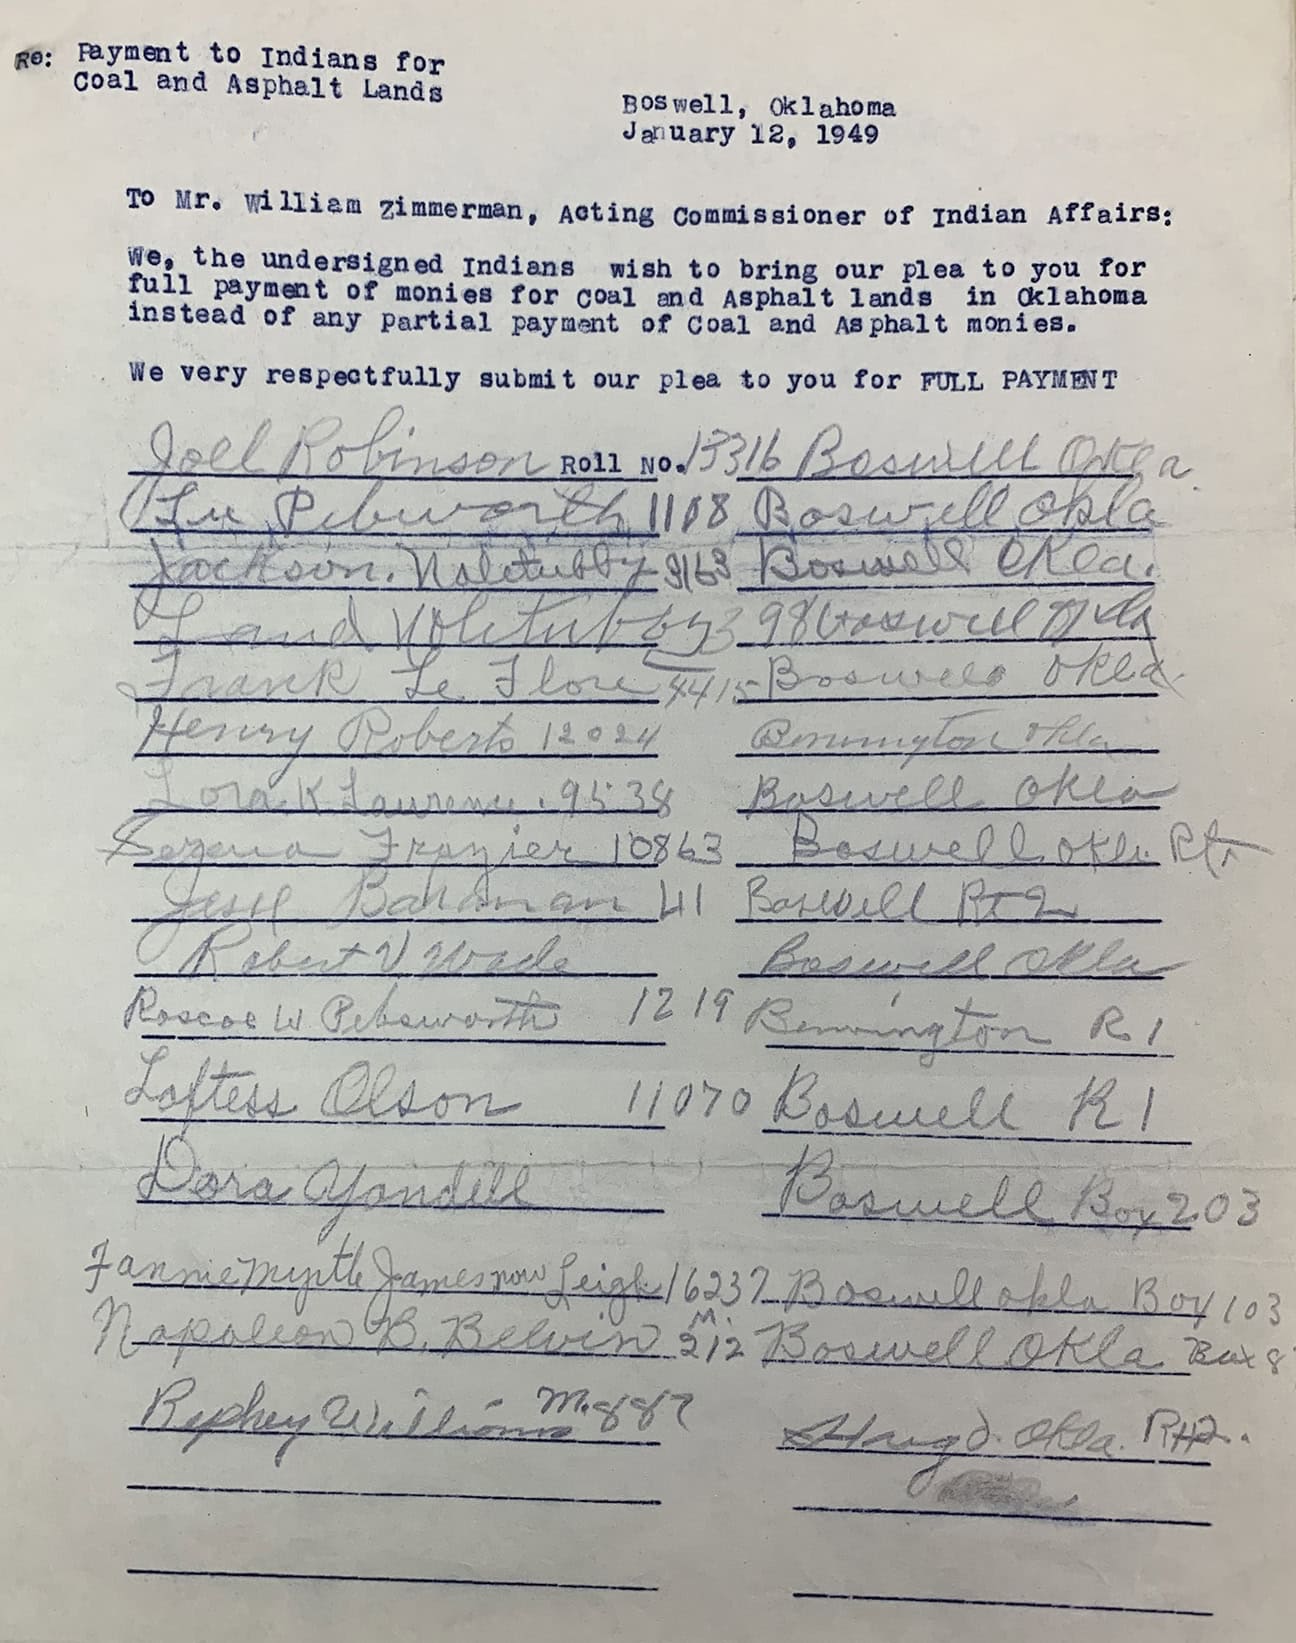 Re: Payment to Indians for
Coal and Asphalt Lands
Boswell, Oklahoma
January 12, 1949
To Mr. William Zimmerman, Acting Commissioner of Indian Affairs:
We, the undersigned Indians wish to bring our plea to you for
full payment of monies for Coal and Asphalt lands in Oklahoma
instead of any partial payment of Coal and Asphalt monies.
We very respectfully submit our plea to you for FULL PAYMENT
Joel Robinson Roll No. 13316 Boswell Okla.
Pebworth 1108 Boswell Okla
Jackson. Noletubby 9163 Boswell Okla.
Boswell Okla
Frank Le Flore 4415 Boswell Okla.
Henry Roberts 12024 Bennington Okla
Lora K Laurence. 9538 Boswell Okla
Frazier 10863 Boswell Okla. Rt
Jesse 41 Boswell Rt 2
Robert V Wade Boswell Okla
Roscoe W Pebsworth 1219 Bennington R 1
Loftess Olson 11070 Boswell R 1
Dora Yandell Boswell Box 203
Fannie Myrtle James now Leigh 16237 Boswell Okla Box 103
Napoleon B. Belvin M. 212 Boswell Okla. Box 8
Williams M. 887 Okla.